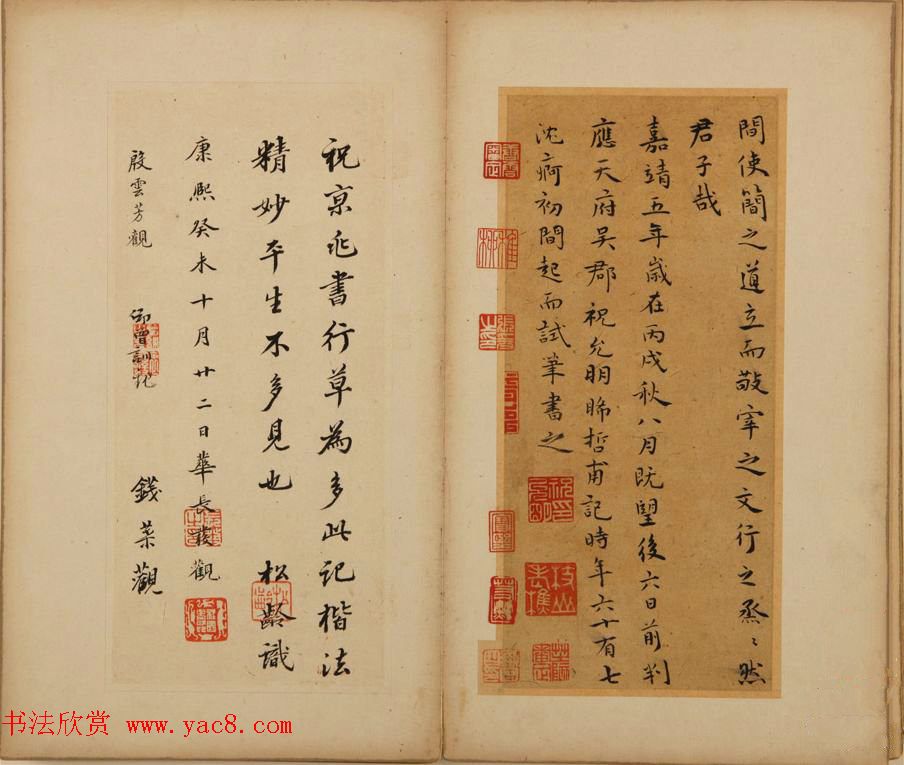 間使簡之道立而敬宰之文行之烝〻然
君子哉
嘉靖五年歲在丙戌秋八月既望後六日前判
應天府吴郡祝允明晞哲甫記時年六十有七
沈痾初間起而試筆書之
祝京兆書行草為多此記楷法
精妙平生不多見也 松齡識
康熙癸未十月廿二日華長發觀
殷雲芳觀 御曾訓記 錢菜觀
书法欣赏 www.yac8.com